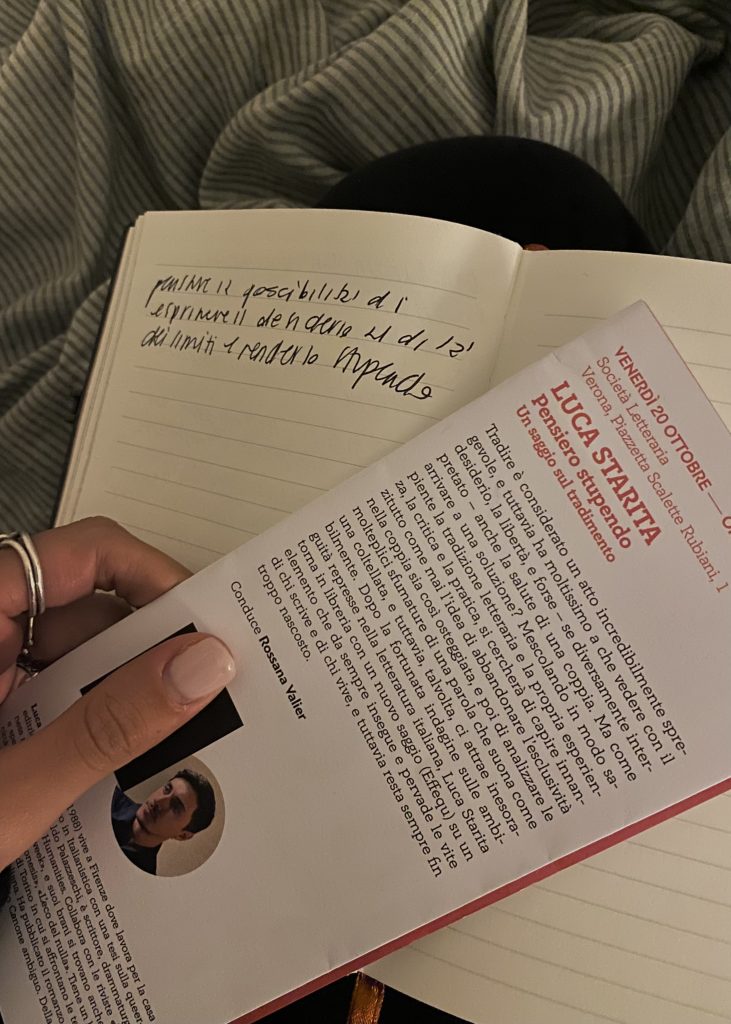 pensare la possibilità di
esprimere il desiderio al di là
dei limiti e renderlo stupendo
VENERDÌ 20 OTTOBRE —
Società Letteraria
Verona, Piazzetta Scalette Rubiani, 1
LUCA STARITA
Pensiero stupendo
Un saggio sul tradimento
Tradire è considerato un atto incredibilmente spre-
gevole, e tuttavia ha moltissimo a che vedere con il
desiderio, la libertà, e forse – se diversamente inter-
pretato – anche la salute di una coppia. Ma come
arrivare a una soluzione? Mescolando in modo sa-
piente la tradizione letteraria e la propria esperien-
za, la critica e la pratica, si cercherà di capire innan-
zitutto come mai l'idea di abbandonare l'esclusività
nella coppia sia così osteggiata, e poi di analizzare le
molteplici sfumature di una parola che suona come
una coltellata, e tuttavia, talvolta, ci attrae inesora-
bilmente. Dopo la fortunata indagine sulle ambi-
guità represse nella letteratura italiana, Luca Starita
torna in libreria con un nuovo saggio (Effequ) su un
elemento che da sempre insegue e pervade le vite
di chi scrive e di chi vive, e tuttavia resta sempre fin
troppo nascosto.
Conduce Rossana Valier
Luca
1988) vive a Firenze dove lavora per la casa
in Italianistica con una tesi sulla queer-
Palazzeschi, è scrittore, drammaturg
Humanities. Collabora con le riviste
e suoi brani si trovano anche
«L'eco del nulla». Tiene un
di Torino in cui si affrontano le
Ha pubblicato il romanzo
Canone ambiguo. Della